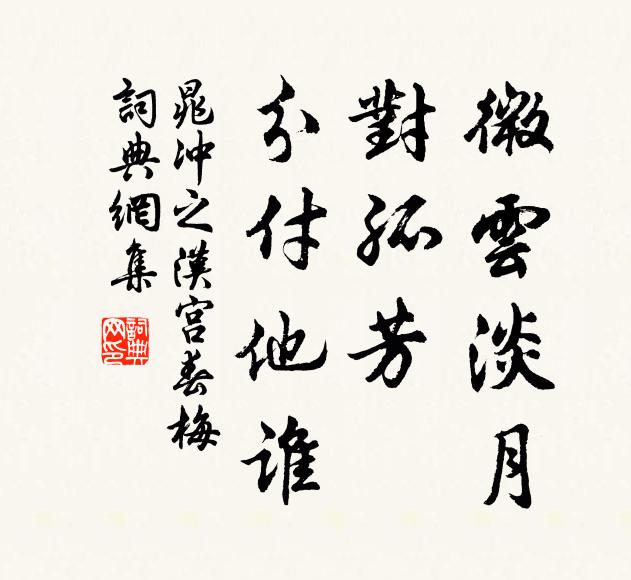 微雲淡月
對孤芳
分付他誰
晁沖之漢宮春梅
詞典網集
詞典
网印